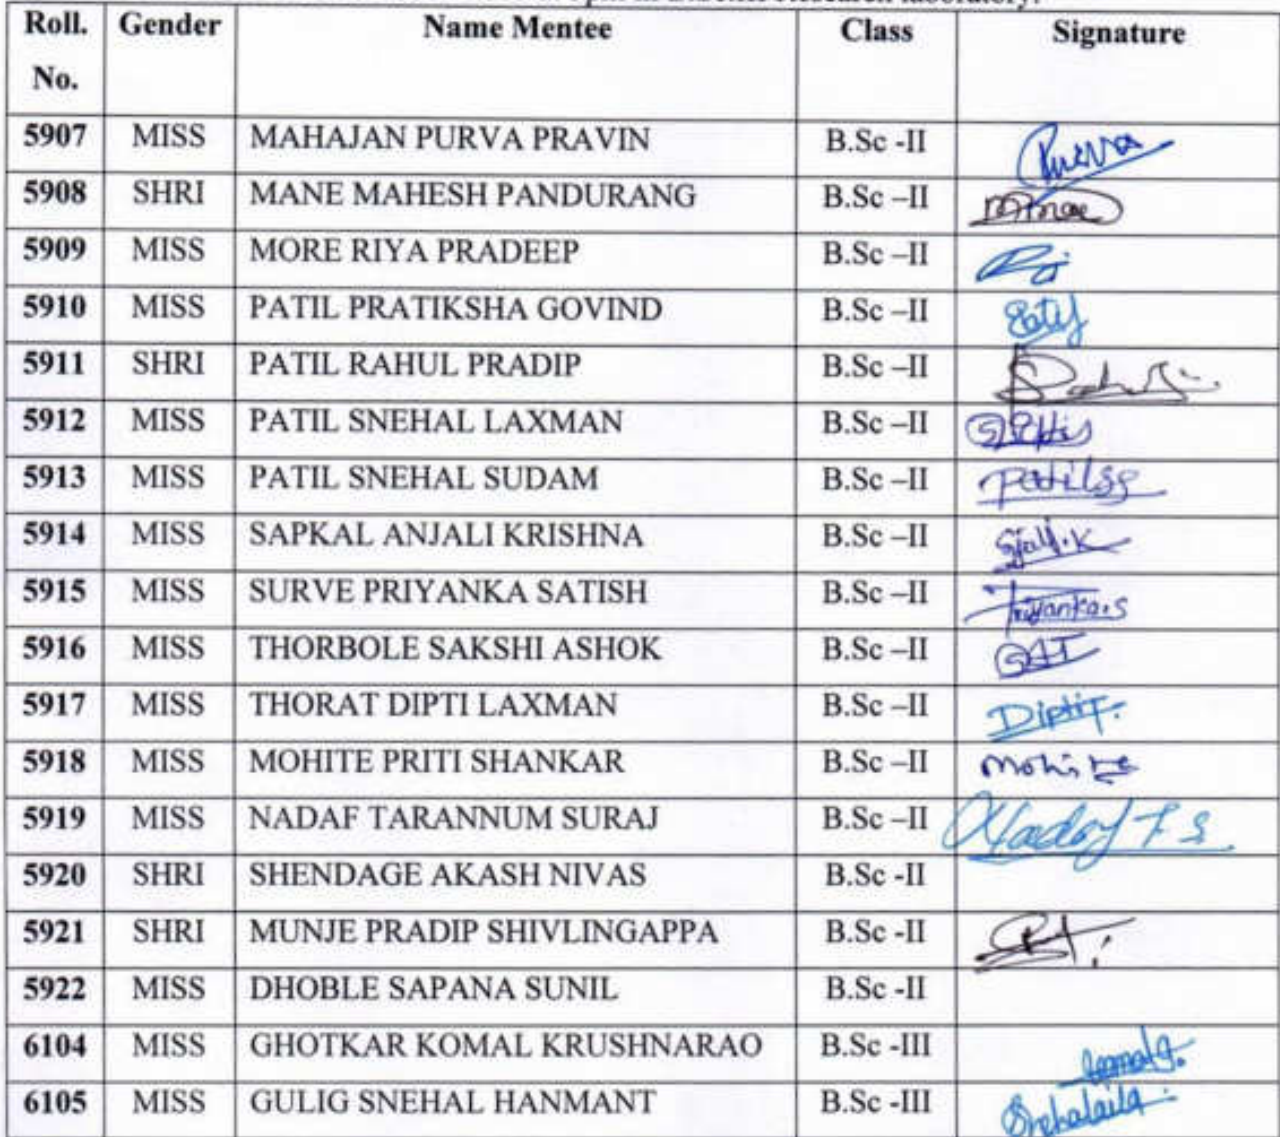 Research laboratory.
Roll. No. Gender Name Mentee Class Signature
5907 MISS MAHAJAN PURVA PRAVIN B.Sc -II Purva
5908 SHRI MANE MAHESH PANDURANG B.Sc –II
5909 MISS MORE RIYA PRADEEP B.Sc –II
5910 MISS PATIL PRATIKSHA GOVIND B.Sc –II
5911 SHRI PATIL RAHUL PRADIP B.Sc –II
5912 MISS PATIL SNEHAL LAXMAN B.Sc –II
5913 MISS PATIL SNEHAL SUDAM B.Sc –II Patilss
5914 MISS SAPKAL ANJALI KRISHNA B.Sc –II
5915 MISS SURVE PRIYANKA SATISH B.Sc –II Priyanka.S
5916 MISS THORBOLE SAKSHI ASHOK B.Sc –II SAT
5917 MISS THORAT DIPTI LAXMAN B.Sc –II DiptiT.
5918 MISS MOHITE PRITI SHANKAR B.Sc –II Mohite
5919 MISS NADAF TARANNUM SURAJ B.Sc –II Nadaf T S.
5920 SHRI SHENDAGE AKASH NIVAS B.Sc -II
5921 SHRI MUNJE PRADIP SHIVLINGAPPA B.Sc -II
5922 MISS DHOBLE SAPANA SUNIL B.Sc -II
6104 MISS GHOTKAR KOMAL KRUSHNARAO B.Sc -III
6105 MISS GULIG SNEHAL HANMANT B.Sc -III